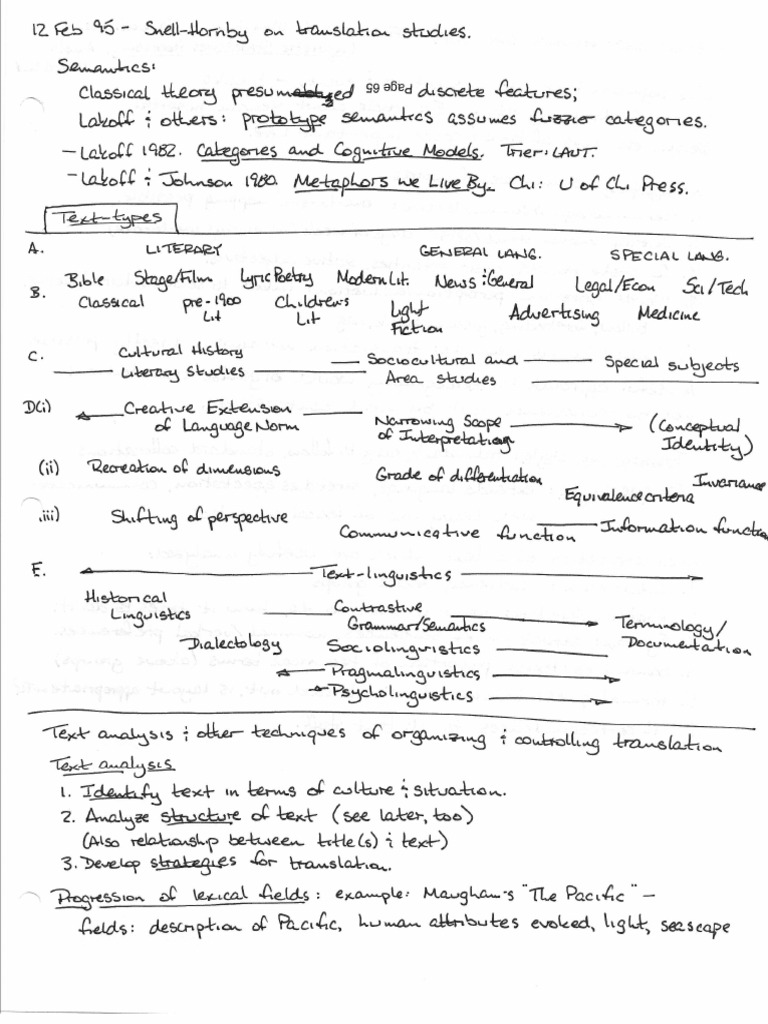 12 Feb 95 - Snell-Hornby on translation studies.
Semantics:
Classical theory presumed Page 65 discrete features;
Lakoff & others: prototype semantics assumes fuzzier categories.
- Lakoff 1982. Categories and Cognitive Models. Trier: LAUT.
- Lakoff & Johnson 1980. Metaphors we Live By. Chi: U of Chi Press.
Text-types
A. LITERARY GENERAL LANG. SPECIAL LANG.
B. Bible Stage/Film Lyric Poetry Modern Lit. News & General Legal/Econ Sci/Tech
Classical pre-1900 Lit Children's Lit Light Fiction Advertising Medicine
C. Cultural History Sociocultural and Special subjects
Literary Studies Area studies
D(i) Creative Extension Narrowing Scope (Conceptual
of Language Norm of Interpretation Identity)
(ii) Recreation of dimensions Grade of differentiation Invariance
Equivalence criteria
iii) Shifting of perspective Communicative function Information functio
E. Text-linguistics
Historical Contrastive
Linguistics Grammar/Semantics Terminology/
Dialectology Sociolinguistics Documentation
Pragmalinguistics
Psycholinguistics
Text analysis & other techniques of organizing & controlling translation
Text analysis
1. Identify text in terms of culture & situation.
2. Analyze structure of text (see later, too)
(Also relationship between title(s) & text)
3. Develop strategies for translation.
Progression of lexical fields: example: Maugham's "The Pacific" -
fields: description of Pacific, human attributes evoked, light, seascape